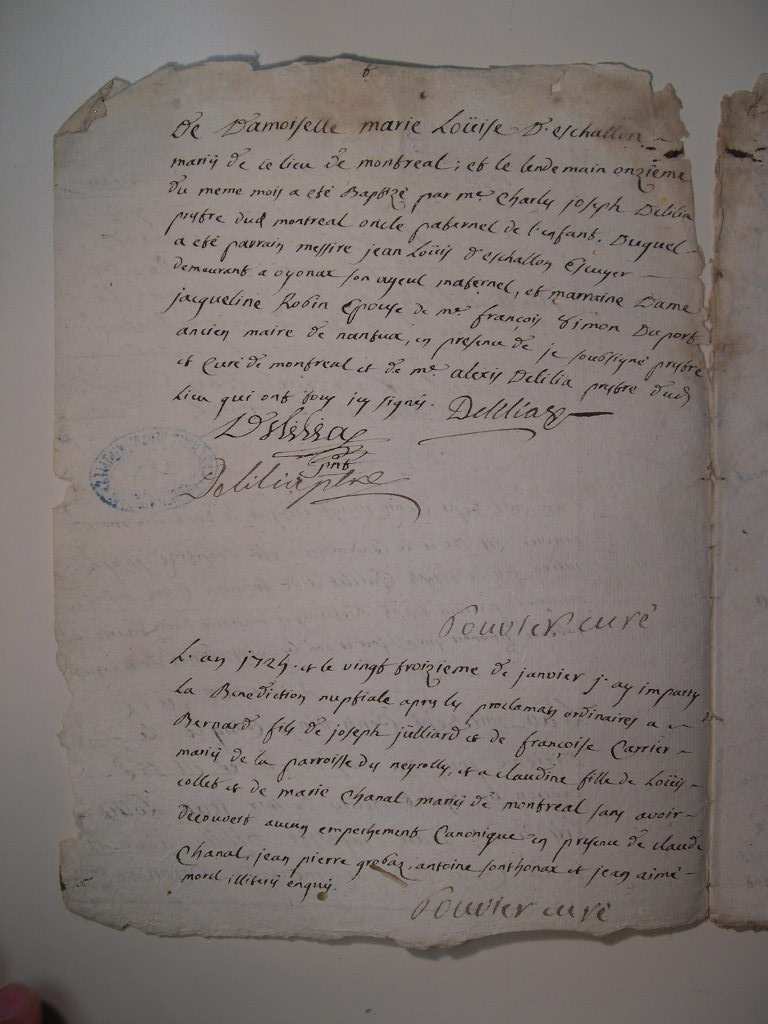 De Damoiselle marie Loüise D'eschallon
mariés de ce lieu de montreal; et le lendemain onzieme
du meme mois a eté Baptizé par me. Charles joseph Delilia
prestre dud montreal oncle paternel de l'enfant. Duquel
a eté parrain messire jean Loüis d'eschallon Escuyer
demeurant a oyonax son ayeul maternel, et marraine Dame
jacqueline Robin Epouse de me françois Simon Duport
ancien maire de nantua, en presence de je soussigné prestre
et Curé de montreal et de me. alexis Delilia prestre dud
Lieu qui ont tous icy signés. Delilia
Delilia
Delilia ptre
Pouvier curé
L'an 1724. et le vingt troizieme de janvier j'ay imparty
La Benediction nuptiale apres les proclamats ordinaires a
Bernard fils de joseph jülliard et de françoise Carrier
mariés de la parroisse des neyrolles, et a claudine fille de Loüis
collet et de marie Chanal mariés de montreal sans avoir
decouvert aucun empeschement Canonique en presence de claude
Chanal, jean pierre grobaz, antoine sonthonax et jean aimé
morel illiterés enquis.
Pouvier curé